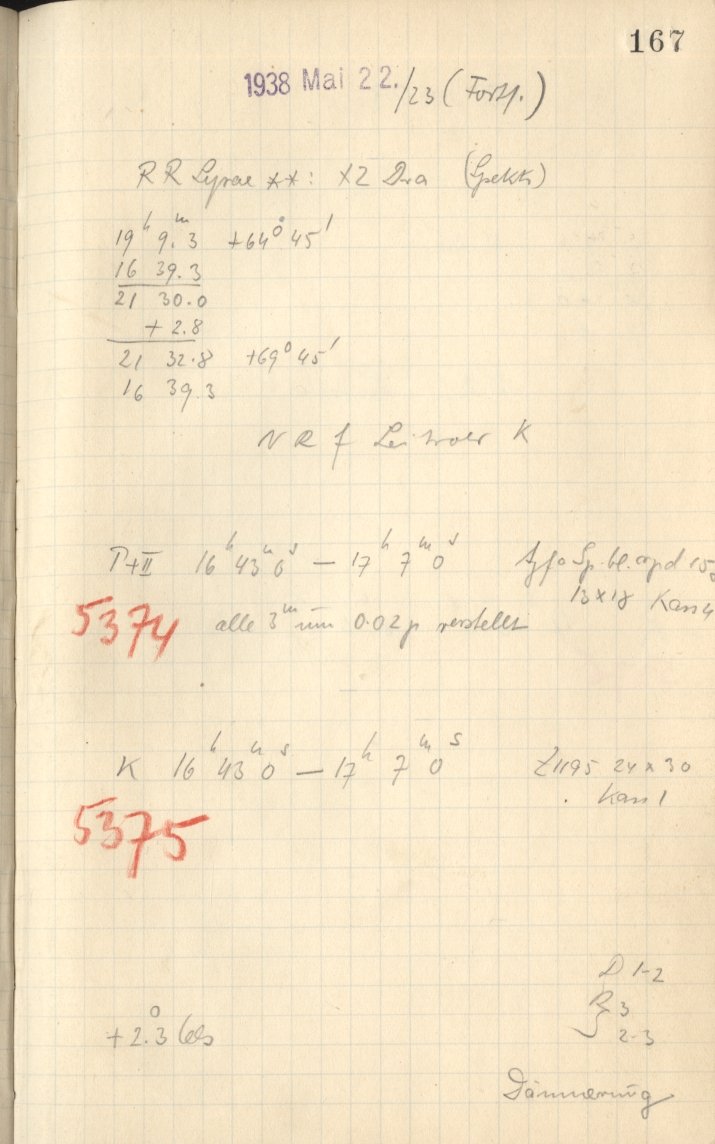 167
1938 Mai 22./23 (Forts.)
RR Lyrae **: XZ Dra (Spektr)
19ʰ 9.ᵐ3 +64° 45'
16 39.3
21 30.0
+ 2.8
21 32.8 +69° 45'
16 39.3
N R f Leitrohr K
P+II 16ʰ 43ᵐ 0ˢ — 17ʰ 7ᵐ 0ˢ Agfa Sp. bl.
13 x 18 Kass 4
5374 alle 3ᵐ um 0.02 p verstellt
K 16ʰ 43ᵐ 0ˢ — 17ʰ 7ᵐ 0ˢ Z1195 24 x 30
Kass 1
5375
D 1-2
R 3
+2.°3 Cels
2-3
Dämmerung